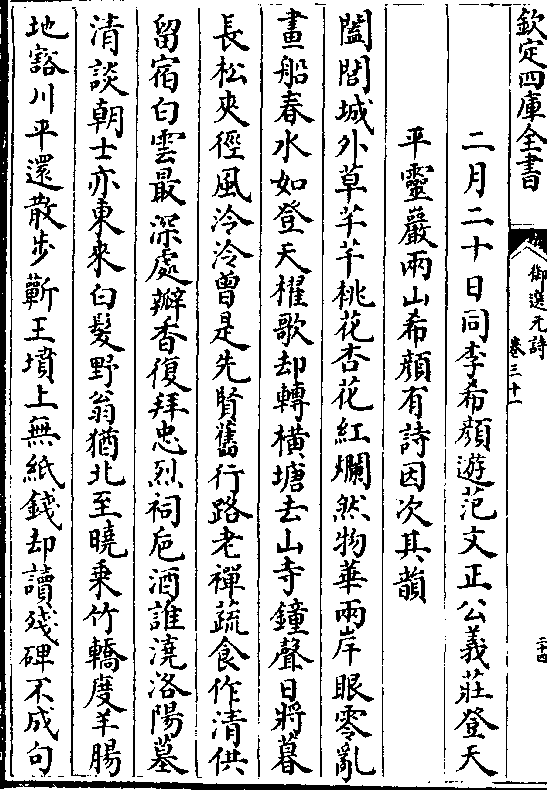 欽定四庫全書
御選元詩
卷三十一
二十四
二月二十日同李希顔遊范文正公義莊登天
平靈巖兩山希顔有詩因次其韻
闔閭城外草芊芊桃花杏花紅爛然物華兩岸眼零亂
畫船春水如登天櫂歌却轉横塘去山寺鐘聲日將暮
長松夾徑風泠泠曾是先賢舊行路老禪蔬食作清供
留宿白雲最深處瓣香復拜忠烈祠巵酒誰澆洛陽墓
清談朝士亦東來白髮野翁猶北至曉乗竹轎度羊腸
地豁川平還散步蘄王墳上無紙錢却讀殘碑不成句